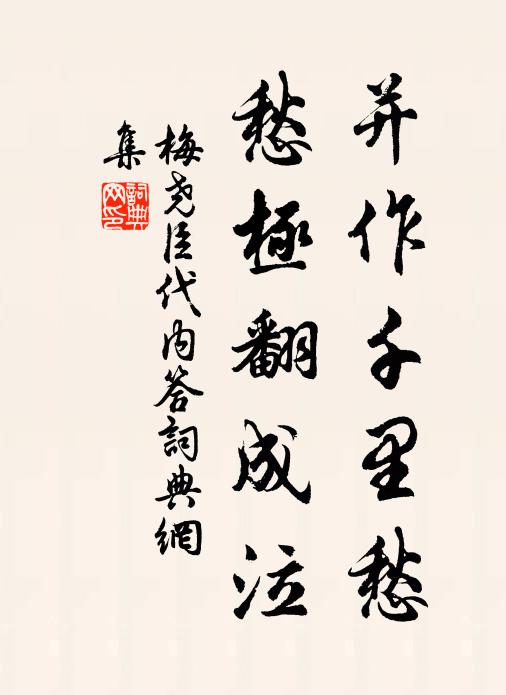 并作千里愁
愁極翻成泣
梅尧臣代内答詞典網
集
詞典
网印